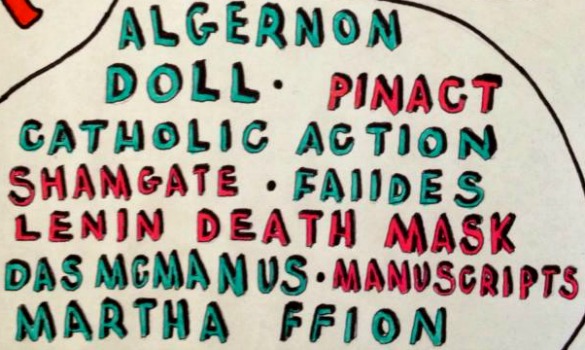 ALGERNON
DOLL· PINACT
CATHOLIC ACTION
SHAMGATE · FAIIDES
LENIN DEATH MASK
DAS MCMANUS·MANUSCRIPTS
MARTHA FFION